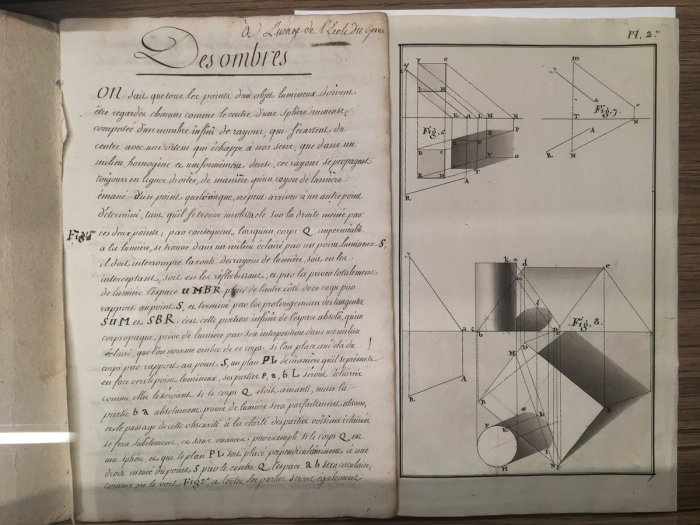 à L'usage de l'École du Génie
Des ombres
On sait que tous les points d'un objet lumineux doivent
être regardés chacun comme le centre d'une sphère immense,
composée d'un nombre infini de rayons, qui s'écartent du
centre avec une vitesse qui échappe à nos sens; que dans un
milieu homogène et uniformément dense, ces rayons se propagent
toujours en lignes droites, de manière qu'un rayon de lumière
émané d'un point quelconque, ne peut arriver à un autre point
déterminé, sans qu'il se trouve un obstacle sur la droite menée par
ces deux points; par conséquent lorsqu'un corps Q imperméable
à la lumière, se trouve dans un milieu éclairé par un point lumineux S,
il doit interrompre la route des rayons de lumière, soit en les
interceptant, soit en les réfléchissant, et par là priver totalement
de lumière l'espace UMBR placé de l'autre côté de ce corps par
rapport au point S, et terminé par les prolongemens des tangentes
SUM et SBR. c'est cette portion infinie de l'espace absolu, qu'un
corps opaque, prive de lumière par son interposition dans un milieu
éclairé, que l'on nomme ombre de ce corps. si l'on place au delà du
corps par rapport au point S, un plan PL de manière qu'il se présente
en face vers le point lumineux, ses parties P, a, b L seront éclairées
comme elles le seroient si le corps Q étoit anéanti, mais la
partie ba absolument privée de lumière sera parfaitement obscure,
et le passage de cette obscurité à la clarté des parties voisines éclairées
se fera subitement, et sans nuances. par exemple si le corps Q, est
une sphère et que le plan PL soit placé perpendiculairement à une
droite menée du point S par le centre Q, l'espace ab sera circulaire,
comme on le voit Fig. et toutes les parties seront également
Pl. 2.e
Fig. 6.
Fig. 7.
Fig. 8.